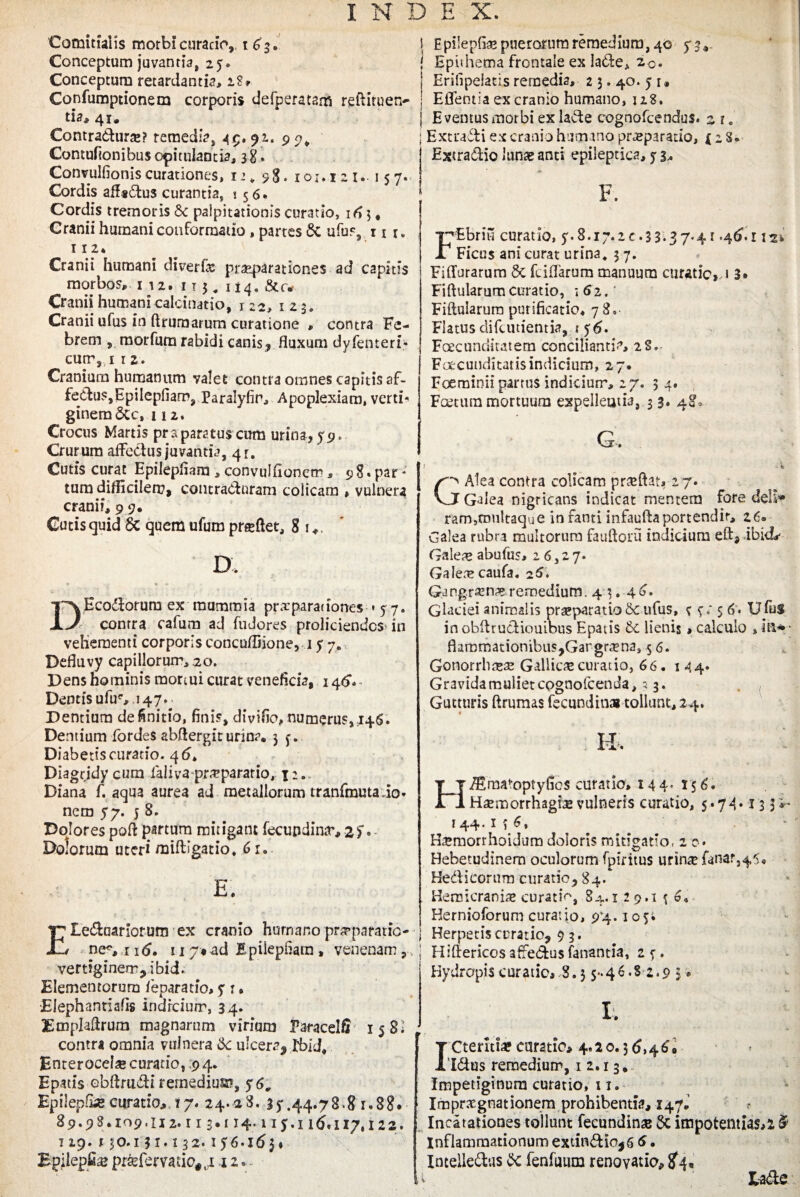 INDEX.
Comitialis morbi curatio, 163.
Conceptum juvantia, 25.
Conceptum retardantia, 28.
Consumptionem corporis desperatam restituen-
tia, 41.
Contracturæ remedia, 49. 92. 99.
Contusionibus opitulantia, 38.
Convulsionis curationes, 12. 98. 101. 121. 157.
Cordis affectus curantia, 156.
Cordis tremoris & palpitationis curatio, 163.
Cranii humani conformatio, partes & usus, 111.
112.
Cranii humani diversæ præparationes ad capitis
morbos, 112. 113. 114. &c.
Cranii humani calcinatio, 122, 123.
Cranii usus in strumarum curatione, contra Fe-
brem, morsum rabidi canis, fluxum dysenteri-
cum, 112.
Cranium humanum valet contra omnes capitis af-
fectus, Epilepsiam, Paralysin, Apoplexiam, verti-
ginem &c, 112.
Crocus Martis præparatus cum urina, 59.
Crurum affectus juvantia, 41.
Cutis curat Epilepsiam, convulsionem, 98. par-
tum difficilem, contracturam colicam, vulnera
cranii, 99.
Cutis quid & quem usum præstet, 81.
D.
DEcoctorum ex mummia præparationes 57.
contra casum ad sudores proliciendos in
vehementi corporis concussione, 157.
Defluvy capillorum, 20.
Dens hominis mortui curat veneficia, 146.
Dentis usus, 147.
Dentium definitio, finis, divisio, numerus, 146.
Dentium sordes abstergit urina. 35.
Diabetis curatio. 46.
Diagridy cum saliva præparatio, 12.
Diana f. aqua aurea ad metallorum transmutatio-
nem 57. 58.
Dolores post partum mitigant secundinæ, 25.
Dolorum uteri mistigatio. 61.
E.
ELectuariorum ex cranio humano præparatio-
nes, 116. 117. ad Epilepsiam, venenam,
vertiginem, ibid.
Elementorum separatio, 51.
Elephantiasis indicium, 34.
Emplastrum magnarum virium Paracelsi 158.
contra omnia vulnera & ulcera, Ibid.
Enterocelæ curatio, 94.
Epatis obstructi remedium, 56.
Epilepsiæ curatio. 17. 24. 28. 35. 44. 78. 81. 88.
89. 98. 109. 112. 113. 114. 115. 116. 117. 122.
129. 130. 131. 132. 156. 163.
Epilepsiæ præservatio, 112.
Epilepsiæ puerorum remedium, 40 53.
Epithema frontale ex lacte, 20.
Erisipelatis remedia, 23. 40. 51.
Essentia ex cranio humano, 128.
Eventus morbi ex lacte cognoscendus. 21.
Extracti ex cranio humano præparatio, 128.
Extractio lunæ anti epileptica, 53.
F.
FEbriū curatio, 5. 8. 17. 20. 33. 37. 41. 46. 112.
Ficus ani curat urina. 37.
Fissurarum & scissarum manuum curatio, 13.
Fistularum curatio, 162.
Fistularum purificatio. 78.
Flatus discutientia, 156.
Fœcunditatem conciliantia, 28.
Fœcunditatis indicium, 27.
Fœminii partus indicium, 27. 34.
Fœtum mortuum expellentia, 33. 48.
G.
GAlea contra colicam præstat, 27.
Galea nigricans indicat mentem fore deli-
ram, multaque infanti infausta portendit, 26.
Galea rubra multorum faustorū indicium est, ibid.
Galeæ abusus, 26, 27.
Galeæ causa. 26.
Gangrænæ remedium. 43. 46.
Glaciei animalis præparatio & usus, 55. 56. Usus
in obstructionibus Epatis & lienis, calculo, in-
flammationibus, Gangræna, 56.
Gonorrhææ Gallicæ curatio, 66. 144.
Gravida mulier cognoscenda, 33.
Gutturis strumas secundinæ tollunt, 24.
H.
HÆmatoptysicos curatio, 144. 156.
Hæmorrhagiæ vulneris curatio, 5. 74. 133.
144. 156.
Hæmorrhoidum doloris mitigatio, 20.
Hebetudinem oculorum spiritus urinæ sanat, 45.
Hecticorum curatio, 84.
Hemicraniæ curatio, 84. 129. 156.
Hernioforum curatio, 94. 105.
Herpetis curatio, 93.
Histericos affectus sanantia, 25.
Hydropis curatio, 8. 35. 46. 82. 93.
I.
ICteritiæ curatio, 4. 20. 36, 46.
Idus remedium, 12. 13.
Impetiginum curatio, 11.
Imprægnationem prohibentia, 147.
Incatationes tollunt secundinæ & impotentias, 25
Inflammationum extinctio, 66.
Intellectus & sensuum renovatio, 84.
Lacte